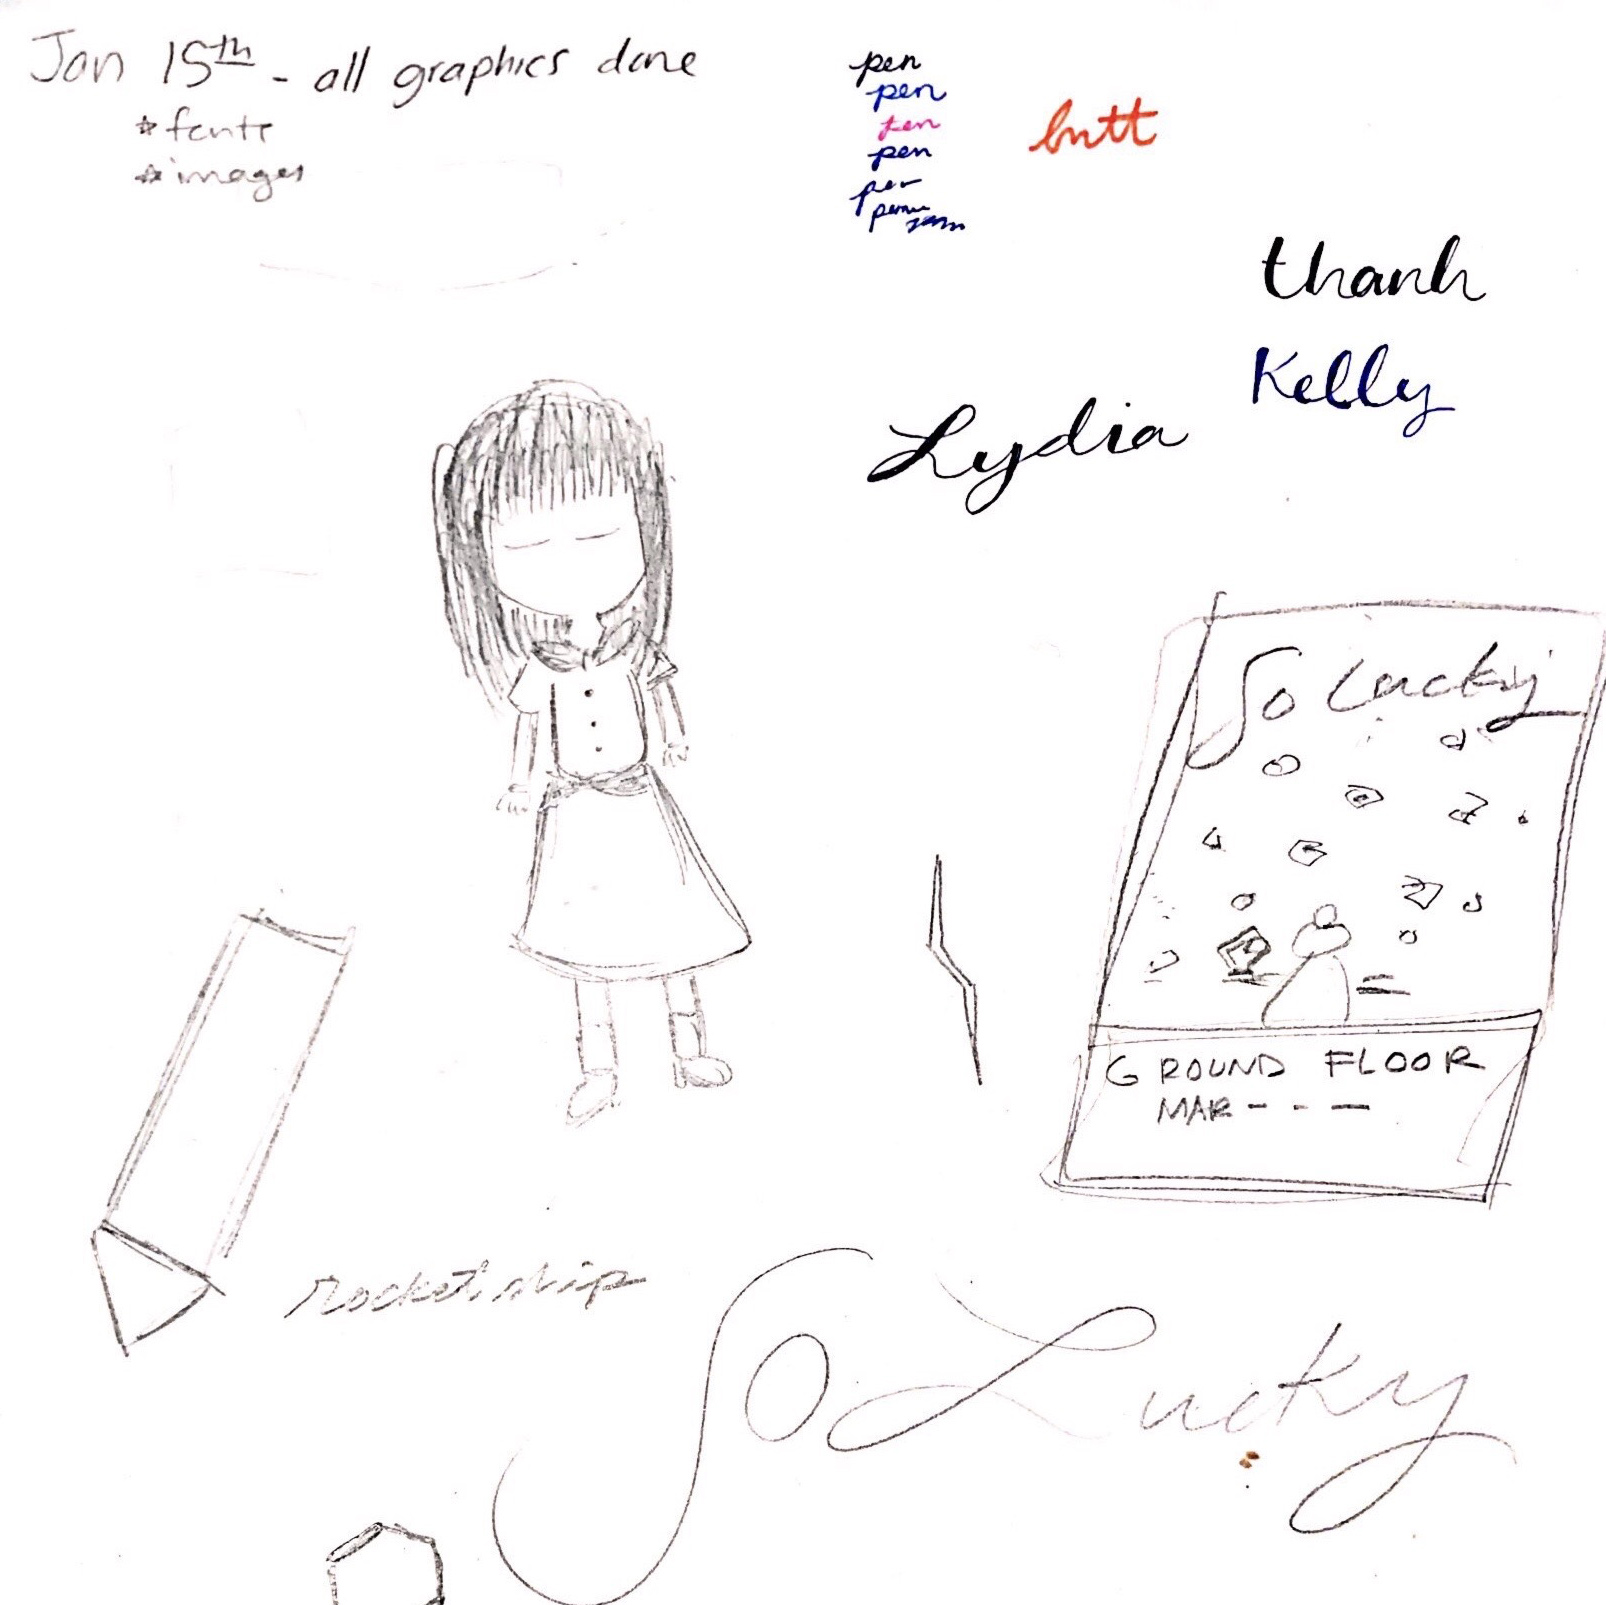 Jan 15th - all graphics done
* fonts
* images
pen
pen
pen
pen
pen
butt
thanh
Kelly
Lydia
So Lucky
GROUND FLOOR
MAR - - -
rocket ship
So Lucky